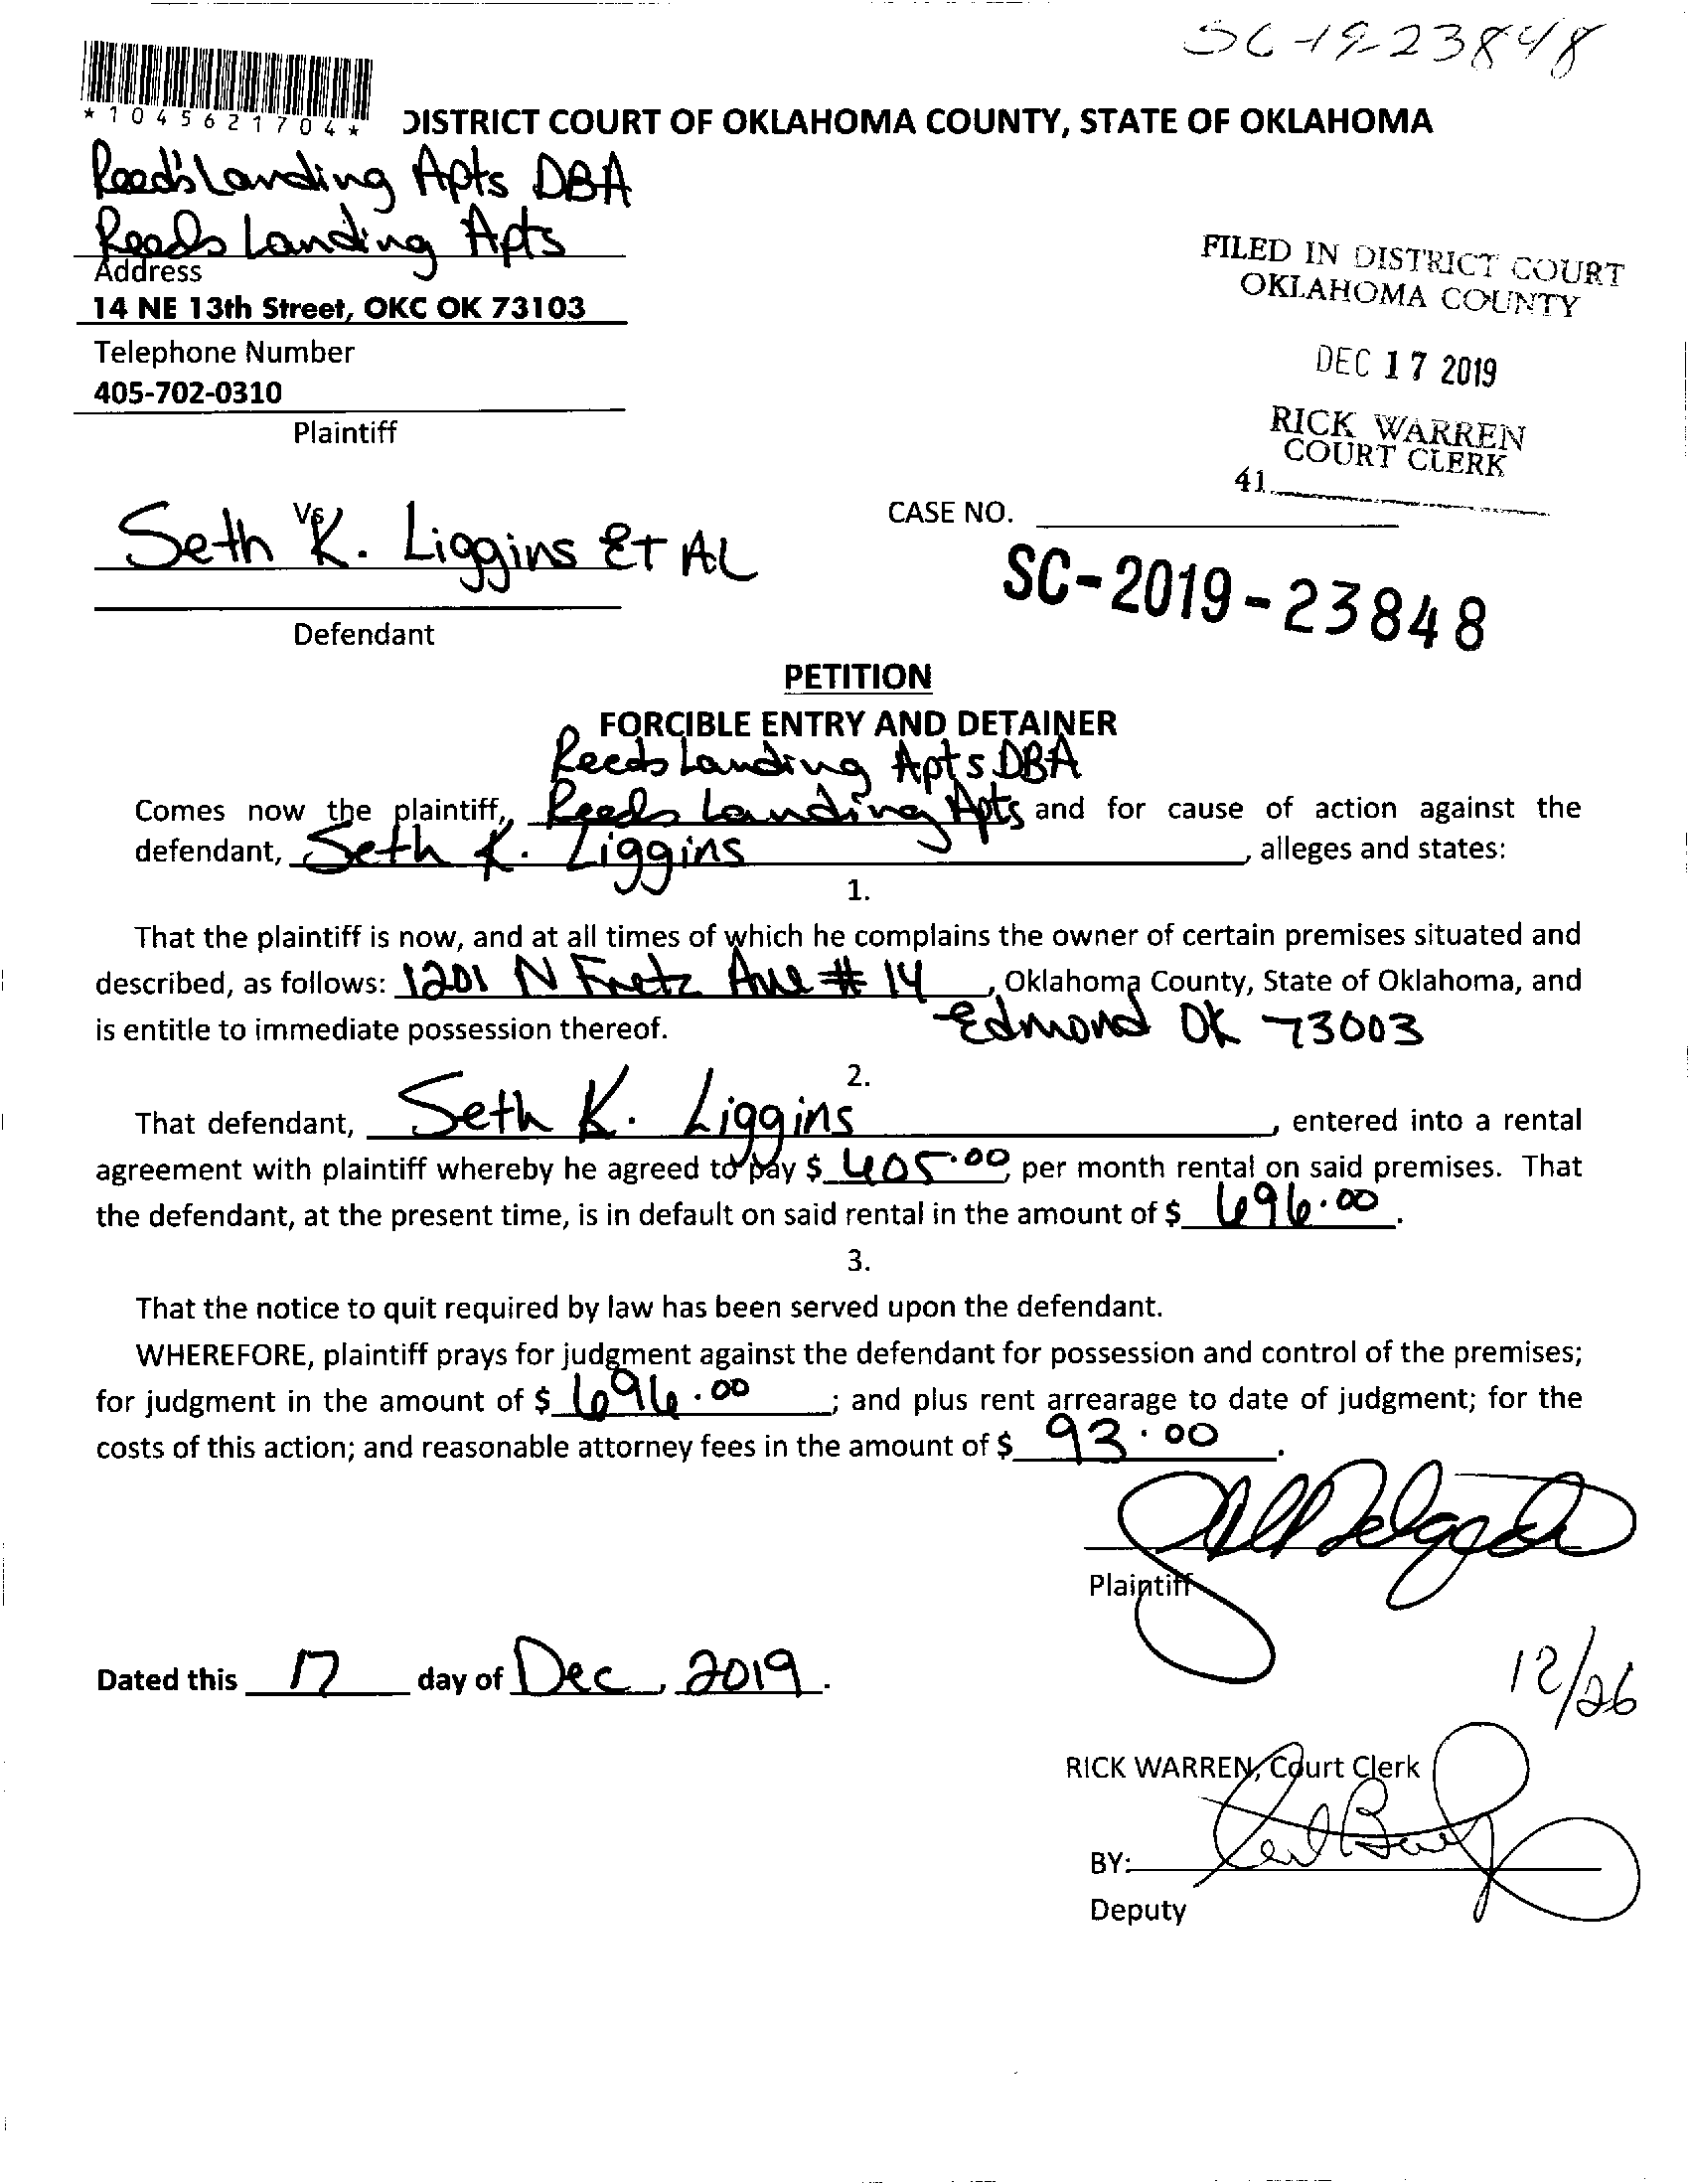 SC-19-23848
*1045621704*
DISTRICT COURT OF OKLAHOMA COUNTY, STATE OF OKLAHOMA
Reed's Landing Apts DBA
Reeds Landing Apts
Address
14 NE 13th Street, OKC OK 73103
Telephone Number
405-702-0310
Plaintiff
FILED IN DISTRICT COURT
OKLAHOMA COUNTY
DEC 17 2019
RICK WARREN
COURT CLERK
41
Vs
Seth K. Liggins ET AL
Defendant
CASE NO.
SC-2019-23848
PETITION
FORCIBLE ENTRY AND DETAINER
Reeds Landing Apts DBA
Comes now the plaintiff, Reeds Landing Apts and for cause of action against the
defendant, Seth K. Liggins, alleges and states:
1.
That the plaintiff is now, and at all times of which he complains the owner of certain premises situated and
described, as follows: 1201 N Fretz Ave # 14, Oklahoma County, State of Oklahoma, and
is entitle to immediate possession thereof. Edmond OK 73003
2.
That defendant, Seth K. Liggins, entered into a rental
agreement with plaintiff whereby he agreed to pay $ 405.00, per month rental on said premises. That
the defendant, at the present time, is in default on said rental in the amount of $ 696.00.
3.
That the notice to quit required by law has been served upon the defendant.
WHEREFORE, plaintiff prays for judgment against the defendant for possession and control of the premises;
for judgment in the amount of $ 696.00; and plus rent arrearage to date of judgment; for the
costs of this action; and reasonable attorney fees in the amount of $ 93.00.
Plaintiff
Dated this 17 day of Dec, 2019.
12/26
RICK WARREN, Court Clerk
BY:
Deputy